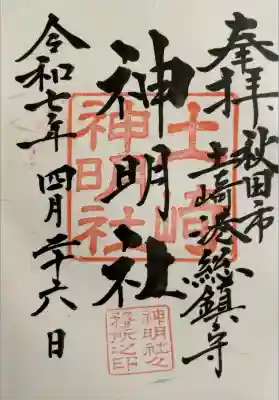 奉拝
秋田市
土崎港総鎮守
神明社
令和七年 四月二十六日
土崎
神明社
神明社公
務所之印